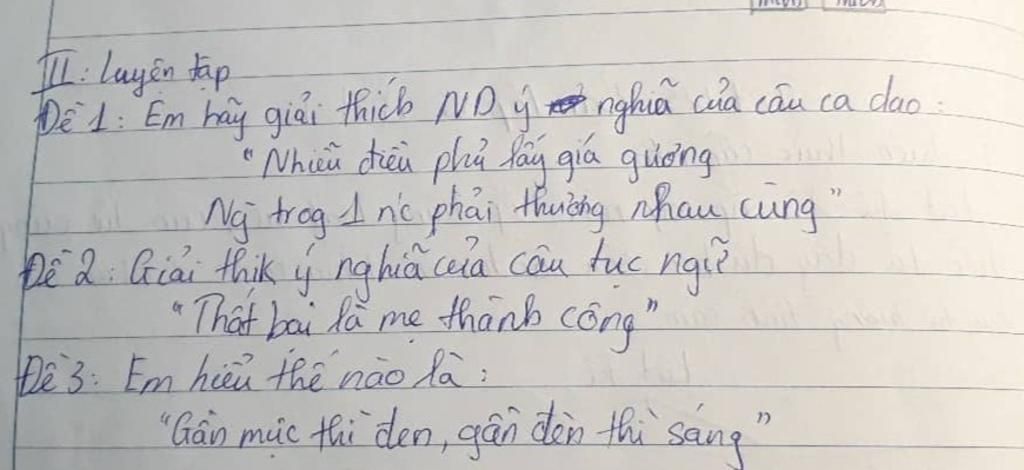 III: Luyện tập
Đề 1: Em hãy giải thích ND ý nghĩa của câu ca dao:
"Nhiễu điều phủ lấy giá gương
Ng trog 1 nc phải thương nhau cùng"
Đề 2: Giải thik ý nghĩa của câu tục ngữ
"Thất bại là mẹ thành công"
Đề 3: Em hiểu thế nào là:
"Gần mực thì đen, gần đèn thì sáng"